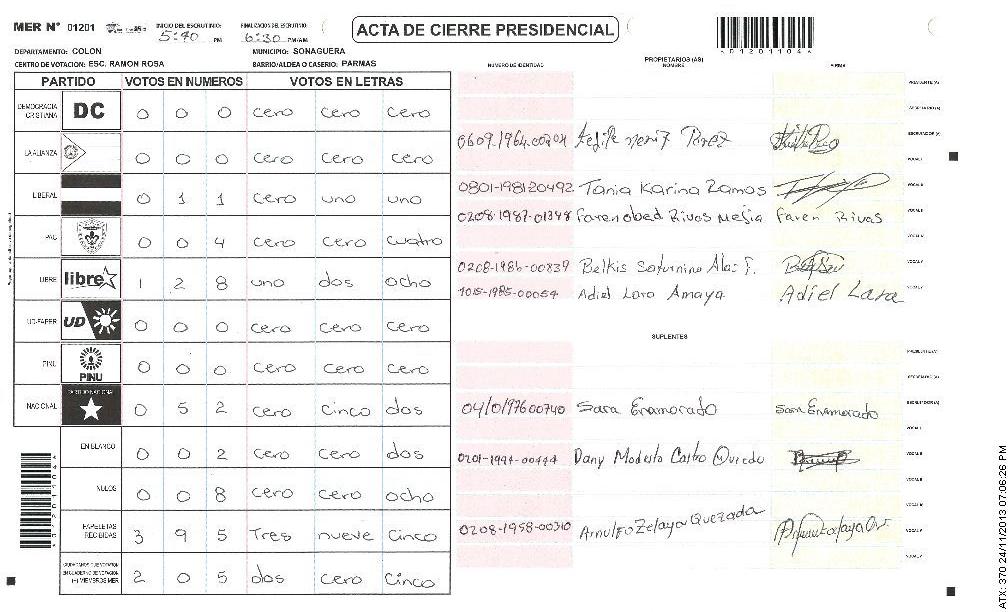 MER N° 01201 INICIO DEL ESCRUTINIO: 5:40 PM FINALIZACION DEL ESCRUTINIO: 6:30 PM/AM
ACTA DE CIERRE PRESIDENCIAL
DEPARTAMENTO: COLON MUNICIPIO: SONAGUERA
CENTRO DE VOTACION: ESC. RAMON ROSA BARRIO/ALDEA O CASERIO: PARMAS
PARTIDO VOTOS EN NUMEROS VOTOS EN LETRAS
DEMOCRACIA CRISTIANA DC 0 0 0 cero cero cero
LA ALIANZA 0 0 0 cero cero cero
LIBERAL 0 1 1 cero uno uno
PAC 0 0 4 cero cero cuatro
LIBRE libre 1 2 8 uno dos ocho
UD-FAPER UD 0 0 0 cero cero cero
PINU PINU 0 0 0 cero cero cero
NACIONAL PARTIDO NACIONAL 0 5 2 cero cinco dos
EN BLANCO 0 0 2 cero cero dos
NULOS 0 0 8 cero cero ocho
PAPELETAS RECIBIDAS 3 9 5 Tres nueve cinco
CIUDADANOS QUE VOTARON EN CUADERNO DE VOTACION (+) MIEMBROS MER 2 0 5 dos cero cinco
PROPIETARIOS (AS)
NUMERO DE IDENTIDAD NOMBRE FIRMA
PRESIDENTE (A)
SECRETARIO (A)
ESCRUTADOR (A)
Perez
VOCAL I
0801-1981-20492 Tania Karina Ramos
VOCAL II
0208-1987-01348 Faren obed Rivas Mejia Faren Rivas
VOCAL III
VOCAL IV
0208-1986-00839 Belkis Saturnino Alas F.
VOCAL V
1015-1985-00054 Adiel Lara Amaya Adiel Lara
SUPLENTES
PRESIDENTE (A)
SECRETARIO (A)
ESCRUTADOR (A)
Sara Enamorado Sara Enamorado
VOCAL I
0201-1994-00444 Dany Modesto Castro Oviedo
VOCAL II
VOCAL III
VOCAL IV
0208-1958-00310 Arnulfo Zelaya Quezada
VOCAL V
20120110 4
ATX: 370 24/11/2013 07:06:26 PM